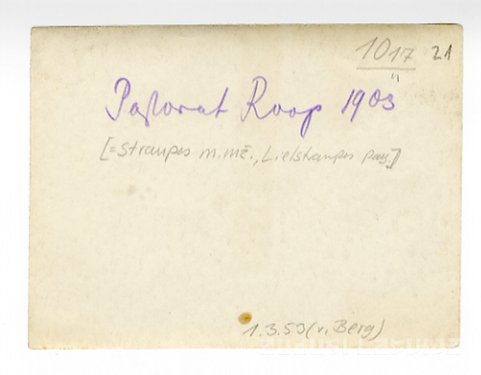 1017 21
"
Pastorat Roop 1903
[= Straupes m.mž., Lielstraupes pag.]
1.3.53 (v. Berg)